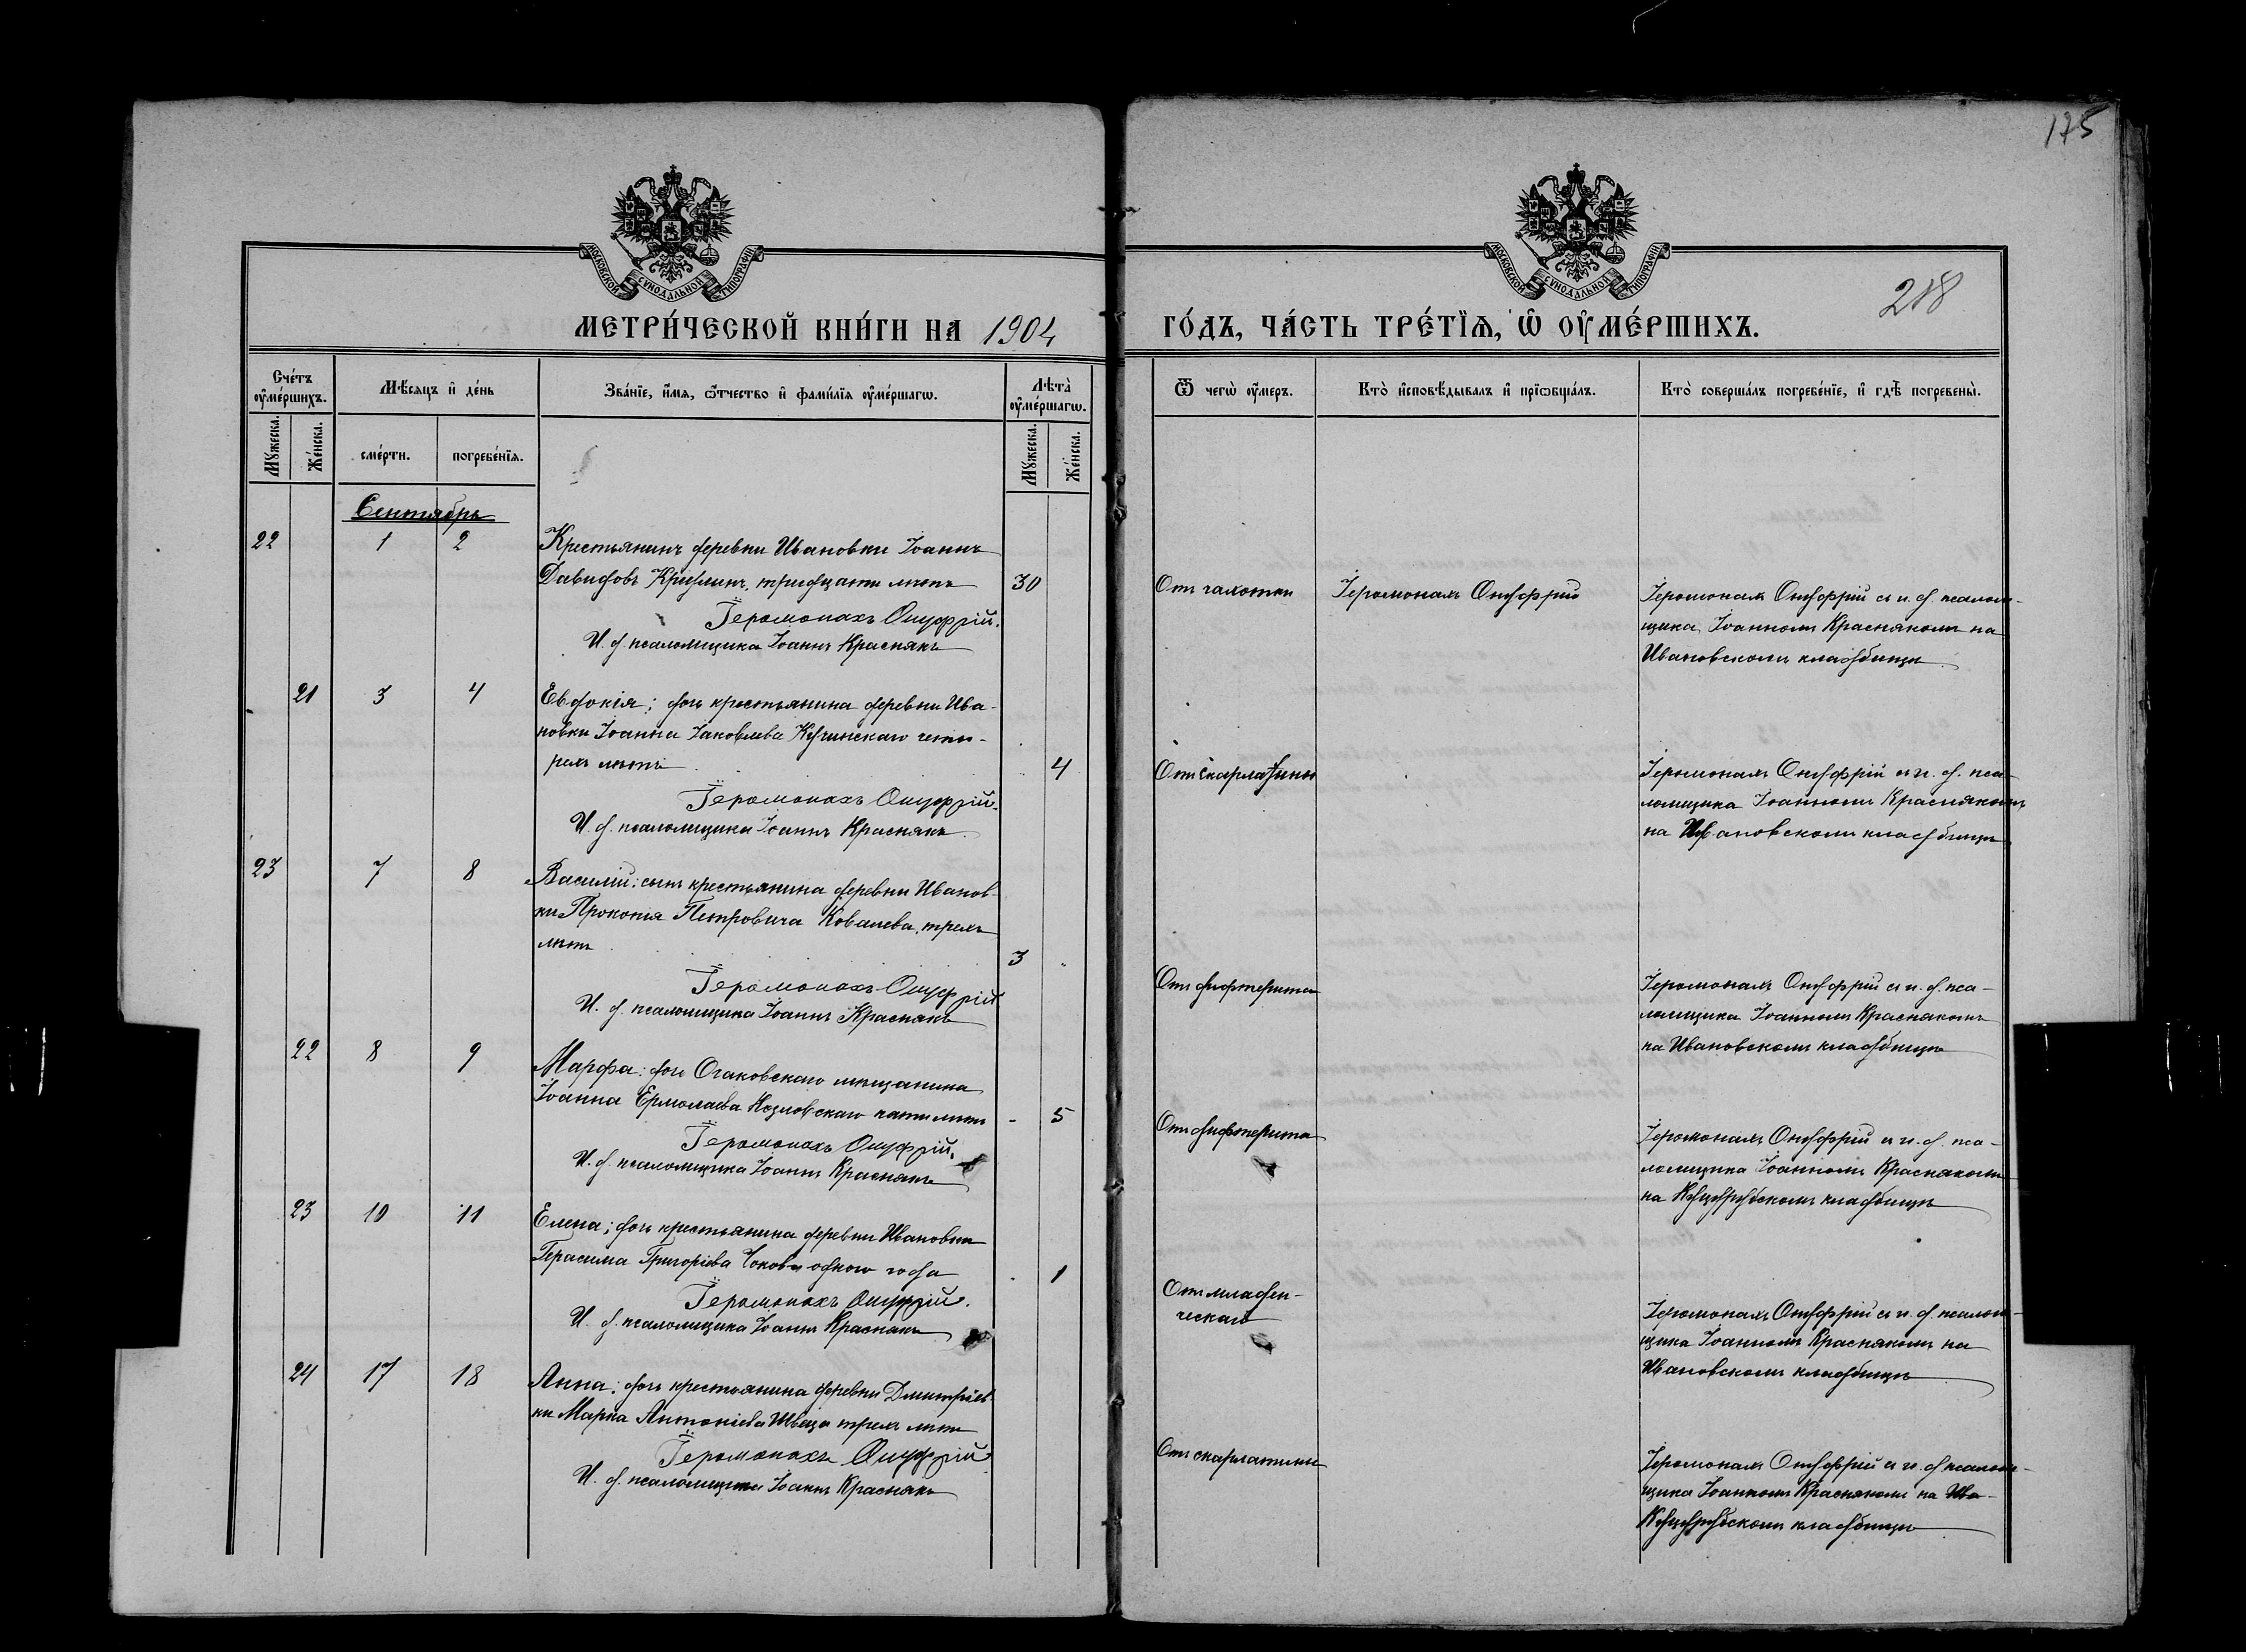 175
МОСКОВСКОЙ СѴНОДАЛЬНОЙ ТИПОГРАФІИ
МОСКОВСКОЙ СѴНОДАЛЬНОЙ ТИПОГРАФІИ
218
МЕТРИ́ЧЕСКОЙ КНИ́ГИ НА 1904
ГО́ДЪ, ЧА́СТЬ ТРЕ́ТЇѦ, Ѡ ОУ҆МЕ́РШИХЪ.
Сче́тъ оу҆ме́ршихъ.
Мѣ́сяцъ и҆ де́нь
Зва́нїе, и҆́мя, ѻ҆́тчество и҆ фами́лїя оу҆ме́ршагѡ.
Лѣта̀ оу҆ме́ршагѡ.
Ѿ чегѡ̀ оу҆́меръ.
Кто̀ и҆сповѣ́дывалъ и҆ прїѡбща́лъ.
Кто̀ соверша́лъ погребе́нїе, и҆ гдѣ̀ погребены̀.
Мꙋ́жеска.
Же́нска.
сме́рти.
погребе́нїя.
Мꙋ́жеска.
Же́нска.
Сентябрь
22 1 2 Крестьянинъ деревни Ивановки Іоаннъ
Давидовъ тридцати лѣтъ 30
Іеромонахъ Онуфрій.
И. д. псаломщика Іоаннъ Краснякъ
Отъ чахотки
Іеромонахъ Онуфрій
Іеромонахъ Онуфрій съ и. д. псалом-
щика Іоанномъ Краснякомъ на
Ивановскомъ кладбищѣ
21 3 4 Евдокія; дочь крестьянина деревни Ива-
новки Іоанна Іаковлева Кучинскаго четы-
рехъ лѣтъ 4
Іеромонахъ Онуфрій.
И. д. псаломщика Іоаннъ Краснякъ
Отъ скарлатины
Іеромонахъ Онуфрій съ и. д. пса-
ломщика Іоанномъ Краснякомъ
на Ивановскомъ кладбищѣ
23 7 8 Василій; сынъ крестьянина деревни Иванов-
ки Прокопія Петровича Ковалева, трехъ
лѣтъ 3
Іеромонахъ Онуфрій
И. д. псаломщика Іоаннъ Краснякъ
Отъ дифтерита
Іеромонахъ Онуфрій съ и. д. пса-
ломщика Іоанномъ Краснякомъ
на Ивановскомъ кладбищѣ
22 8 9 Марфа; дочь Очаковскаго мѣщанина
Іоанна Ермолаева Козловскаго пяти лѣтъ - 5
Іеромонахъ Онуфрій.
И. д. псаломщика Іоаннъ Краснякъ
Отъ дифтерита
Іеромонахъ Онуфрій съ и. д. пса-
ломщика Іоанномъ Краснякомъ
на Куцурубскомъ кладбищѣ
23 10 11 Елена; дочь крестьянина деревни Ивановки
Герасима Григоріева одного года 1
Іеромонахъ Онуфрій.
И. д. псаломщика Іоаннъ Краснякъ
Отъ младен-
ческаго
Іеромонахъ Онуфрій съ и. д. псалом-
щика Іоанномъ Краснякомъ на
Ивановскомъ кладбищѣ
24 17 18 Анна; дочь крестьянина деревни Дмитріев-
ки Марка Антоніева Швеца трехъ лѣтъ
Іеромонахъ Онуфрій
И. д. псаломщика Іоаннъ Краснякъ
Отъ скарлатины
Іеромонахъ Онуфрій съ и. д. псалом-
щика Іоанномъ Краснякомъ на Ива-
Куцурубскомъ кладбищѣ